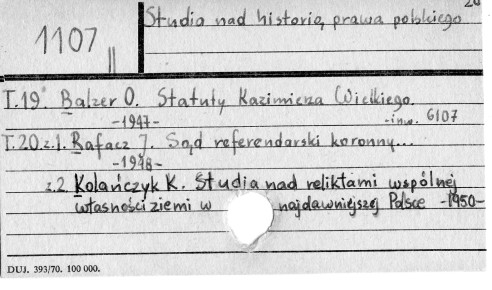 20
1107 Studia nad historią prawa polskiego
T.19. Balzer O. Statuty Kazimierza Wielkiego.
-1947- -inw. 6107
T.20.z.1. Rafacz J. Sąd referendarski koronny...
-1948-
z.2 Kolańczyk K. Studia nad reliktami wspólnej
własności ziemi w najdawniejszej Polsce -1950-
DUJ. 393/70. 100 000.